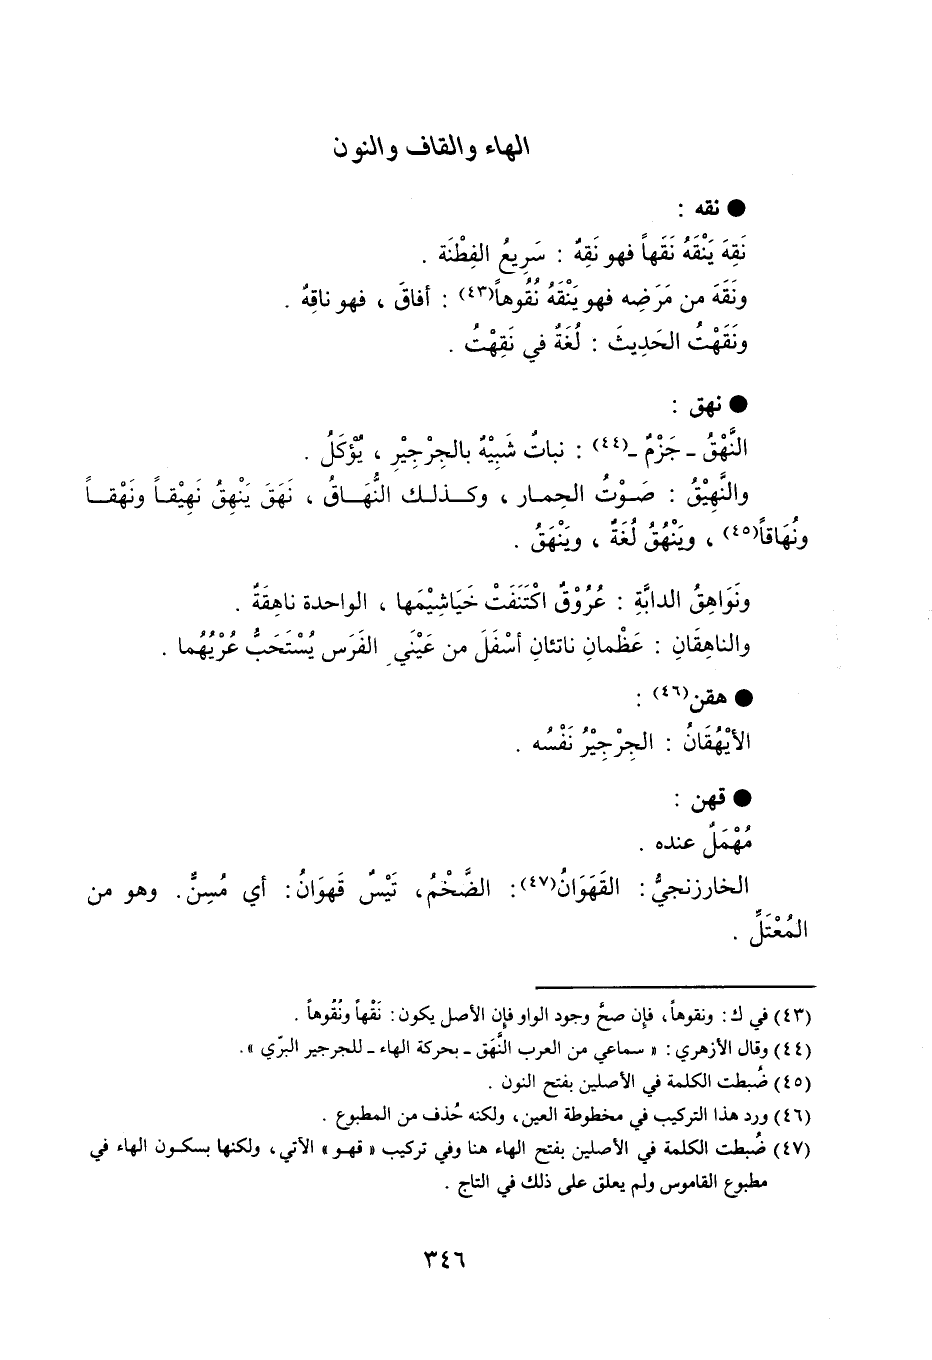 الهاء والقاف والنون
● نقه :
نَقِهَ يَنْقَهُ نَقَهاً فهو نَقِهٌ : سَرِيعُ الفِطْنَة .
ونَقَهَ من مَرَضِه فهو يَنْقَهُ نُقُوهاً(٤٣) : أفاقَ ، فهو ناقِهٌ .
ونَقَهْتُ الحَدِيثَ : لُغَةٌ في نَقِهْتُ .
● نهق :
النَّهْقُ ـ جَزْمٌ ـ(٤٤) : نباتٌ شَبِيْهٌ بالجِرْجِيْرِ ، يُؤْكَلُ .
والنَّهِيْقُ : صَوْتُ الحِمار ، وكذلك النُّهَاقُ ، نَهَقَ يَنْهِقُ نَهِيْقاً ونَهْقاً
ونُهَاقاً(٤٥) ، ويَنْهُقُ لُغَةٌ ، ويَنْهَقُ .
ونَوَاهِقُ الدابَّةِ : عُرُوْقٌ اكْتَنَفَتْ خَيَاشِيْمَها ، الواحدة ناهِقَةٌ .
والناهِقَانِ : عَظْمانِ ناتئانِ أسْفَلَ من عَيْنَيِ الفَرَس يُسْتَحَبُّ عُرْيُهُما .
● هقن(٤٦) :
الأيْهُقَانُ : الجِرْجِيْرُ نَفْسُه .
● قهن :
مُهْمَلٌ عنده .
الخارزنجيُّ : القَهَوَانُ(٤٧): الضَّخْمُ، تَيْسٌ قَهوَانُ: أي مُسِنٌّ. وهو من
المُعْتَلِّ .
(٤٣) في ك: ونقوهاً، فإن صحَّ وجود الواو فإن الأصل يكون: نَقْهاً ونُقُوهاً .
(٤٤) وقال الأزهري: « سماعي من العرب النَّهَق ـ بحركة الهاء ـ للجرجير البرّي ».
(٤٥) ضُبطت الكلمة في الأصلين بفتح النون .
(٤٦) ورد هذا التركيب في مخطوطة العين، ولكنه حُذف من المطبوع .
(٤٧) ضُبطت الكلمة في الأصلين بفتح الهاء هنا وفي تركيب « قهو » الآتي، ولكنها بسكون الهاء في
مطبوع القاموس ولم يعلق على ذلك في التاج .
٣٤٦